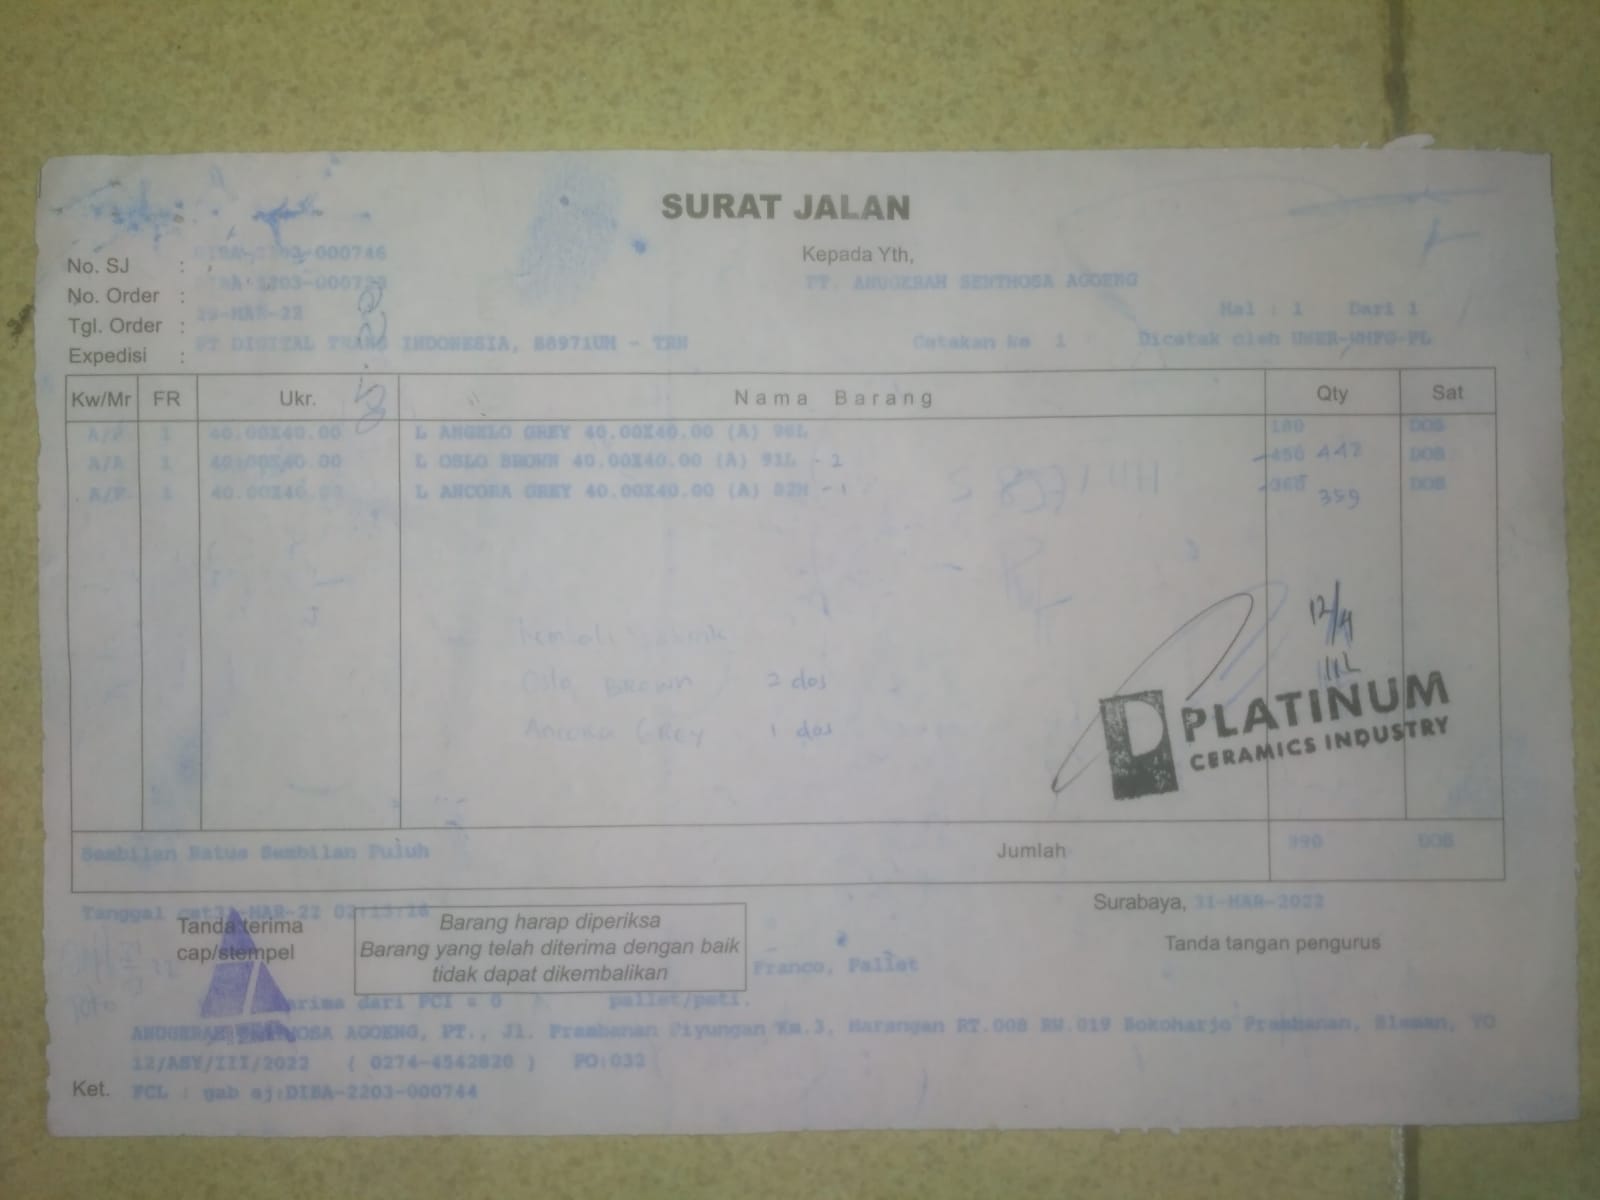 SURAT JALAN
No. SJ : DIBA-2203-000746
No. Order :
Tgl. Order : 29-MAR-22
Expedisi : PT DIGITAL TRANS INDONESIA, S8971UH - TRN
Kepada Yth,
PT. ANUGERAH SENTHOSA AGOENG
Hal : 1 Dari 1
Cetakan ke 1 Dicetak oleh
Kw/Mr FR Ukr. Nama Barang Qty Sat
A/P 1 40.00X40.00 L ANGELO GREY 40.00X40.00 (A) 180 DOS
A/A 1 40.00X40.00 L OSLO BROWN 40.00X40.00 (A) 91L - 2 -450 447 DOS
A/P 1 40.00X40.00 L ANCORA GREY 40.00X40.00 (A) 82H - 1 -360 359 DOS
S 8971 UH
Oslo BROWN 2 dos
Ancora GREY 1 dos
12/4
PLATINUM
CERAMICS INDUSTRY
Sembilan Ratus Sembilan Puluh Jumlah 990 DOS
Surabaya, 31-MAR-2022
Tanda tangan pengurus
Tanda terima
cap/stempel
Barang harap diperiksa
Barang yang telah diterima dengan baik
tidak dapat dikembalikan
Franco, Pallet
dari PCI = 0 pallet/peti.
AGOENG, PT., Jl. Prambanan Piyungan Km.3, Marangan RT.008 RW.019 Bokoharjo Prambanan, Sleman, YO
12/ASY/III/2022 ( 0274-4542820 ) PO:032
Ket. FCL : gab sj:DIBA-2203-000744